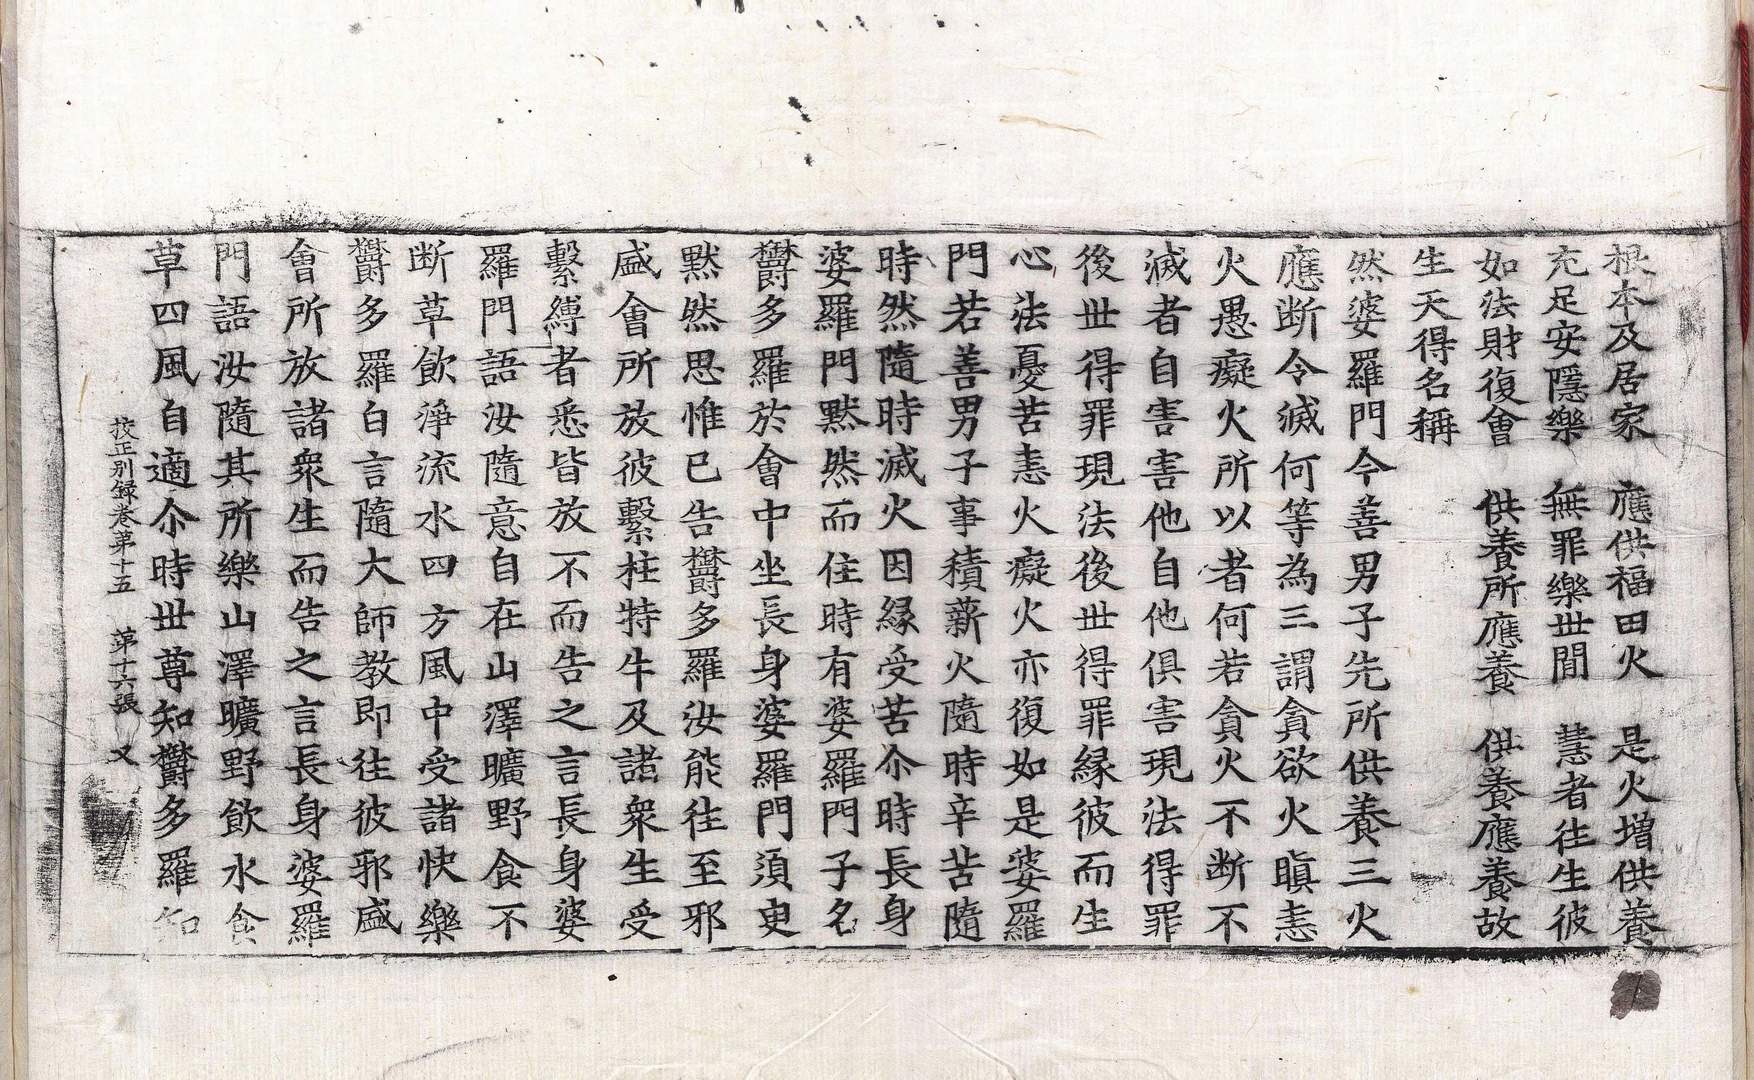 根本及居家　應供福田火　是火増供養
充足安隱樂　無罪樂世間　慧者往生彼
如法財復會　供養所應養　供養應養故
生天得名稱
然婆羅門今善男子先所供養三火
應断令滅何等為三謂貪欲火瞋恚
火愚癡火所以者何若貪火不断不
滅者自害害他自他俱害現法得罪
後世得罪現法後世得罪緣彼而生
心法憂苦恚火癡火亦復如是婆羅
門若善男子事積薪火隨時辛苦隨
時然隨時滅火因緣受苦尒時長身
婆羅門黙然而住時有婆羅門子名
欝多羅於會中坐長身婆羅門須臾
黙然思惟已告欝多羅汝能往至邪
盛會所放彼繫柱特牛及諸衆生受
繫縛者悉皆放不而告之言長身婆
羅門語汝隨意自在山澤曠野食不
断草飲淨流水四方風中受諸快樂
欝多羅白言隨大師教即往彼邪盛
會所放諸衆生而告之言長身婆羅
門語汝隨其所樂山澤曠野飲水食
草四風自適尒時世尊知欝多羅知
校正别録卷苐十五　苐十六張　又